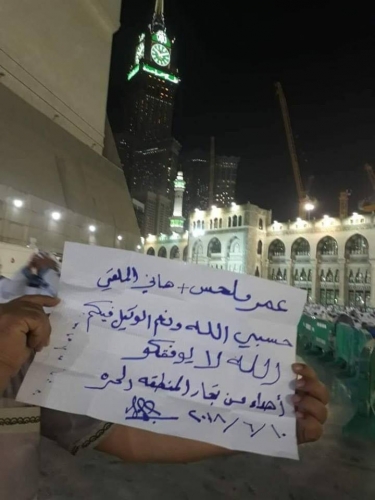 عمر ملحس + هاني الملقي
حسبي الله ونعم الوكيل فيكم
الله لا يوفقكو
أهداء من تجار المنطقه الحره
٢٠١٨/٦/١٠